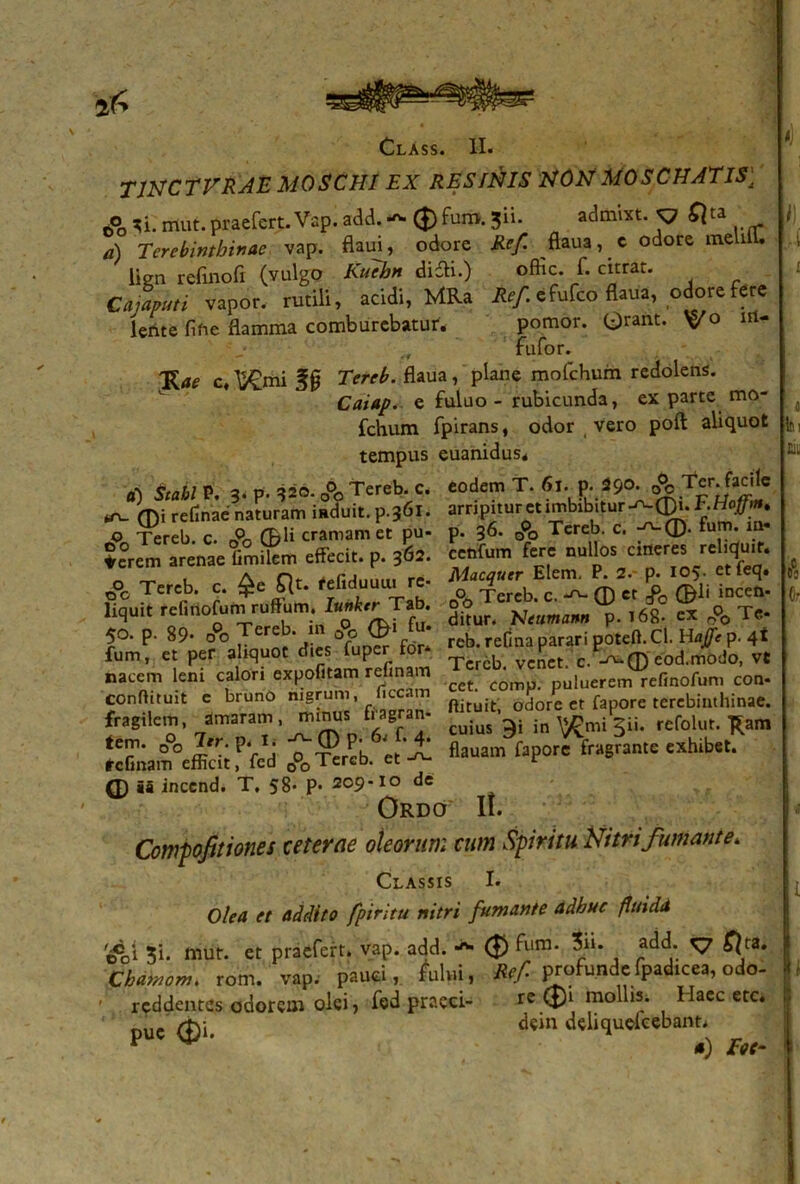 26
CLASS. II.
TINCTVRAE MOSCHI EX RESINIS NON MOSCHATIS.
ʒi. mut. praefert. Vap. add. fum. ʒii. admixt. 🜄 ta
a) Terebinthinae vap. flaui, odore Ref. flaua, e odore meliss.
lign resinosi (vulgo Kuehn dicti.) offic. s. citrat.
Cajaputi vapor. rutili, acidi, MRa Ref. e fusco flaua, odore fere
lente sine flamma comburebatur. pomor. Orant. o in-
fusor.
Rae c. mi Tereb. flaua, plane moschum redolens.
Caiap. e fuluo-rubicunda, ex parte mo-
schum spirans, odor vero post aliquot
tempus euanidus.
a) Stahl P. 3. p. 320. Tereb. c.
i resinae naturam induit. p. 361.
Tereb. c. li cramam et pu-
verem arenae similem effecit. p. 362.
Tereb. c. e t. residuum re-
liquit resinosum russum. Iunker Tab.
50. p. 89. Tereb. in i fu-
sum, et per aliquot dies super for-
nacem leni calori expositam resinam
constituit e bruno nigrum, siccam
fragilem, amaram, minus fragran-
tem. Ter. p. 1. p. 6. f. 4.
resinam efficit, sed Tereb. et
āā incend. T. 58. p. 209-10 de
eodem T. 61. p. 290. Ter. facile
arripitur et imbibitur i. F. Hoffm.
p. 36. Tereb. c. fum. in-
censum fere nullos cineres reliquit.
Macquer Elem. P. 2. p. 105. et seq.
Tereb. c. et li incen-
ditur. Neumann p. 168. ex Te-
reb. resina parari potest. Cl. Hasse p. 41
Tereb. venet. c. eod. modo, vt
cet. comp. puluerem resinosum con-
stituit, odore et sapore terebinthinae.
cuius ℈i in mi ʒii. resolut. Ram
flauam sapore fragrante exhibet.
ORDO II.
Compositiones ceterae oleorum cum Spiritu Nitri fumante.
CLASSIS I.
Olea et addito spiritu nitri fumante adhuc fluida
i ʒi. mut. et praefert. vap. add. fum. ʒii. add. 🜄 ta.
Chamom. rom. vap. pauci, fului, Ref. profunde spadicea, odo-
reddentes odorem olei, sed praeci- re i mollis. Haec etc.
pue i. dein deliquescebant.
a) Foe-